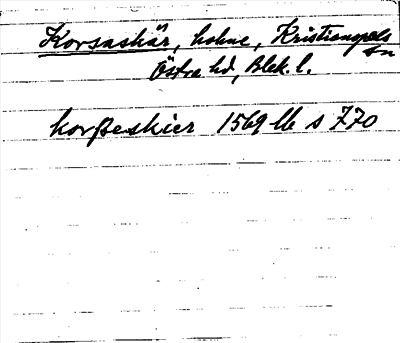 Korsaskär, holme, Kristianopels sn
Östra hd, Blek. l.
korßeskier 1569 llb s 770